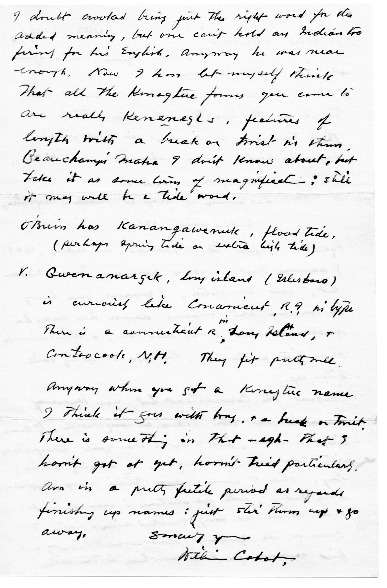 I doubt crooked being just the right word for the
added meaning, but one can't hold an Indian too
firmly for his English. Anyway he was near
enough. Now I have let myself think
that all the Kenegtuc forms you come to
are really Kenenegks, features of
length with a break or twist in them.
Beauchamp's Maha I don't know about, but
take it as some turn of magnificat - ; still
it may well be a tide word.
O'Brien has Kanangawenuk, flood tide.
(perhaps spring tide or extra high tide)
V. Gwenanargek, long island (Islesboro)
is curiously like Conanicut, R.I. in type
There is a Connecticut R in Long Island, +
Contoocook, N.H. They fit pretty well.
Anyway when you get a Kenegtuc name
I think it goes with long, + a break or twist.
There is something in that -egk- that I
haven't got at yet, haven't tried particularly.
Am in a pretty futile period as regards
finishing up names : just stir them up + go
away. Sincerely yrs
Wm Cabot.